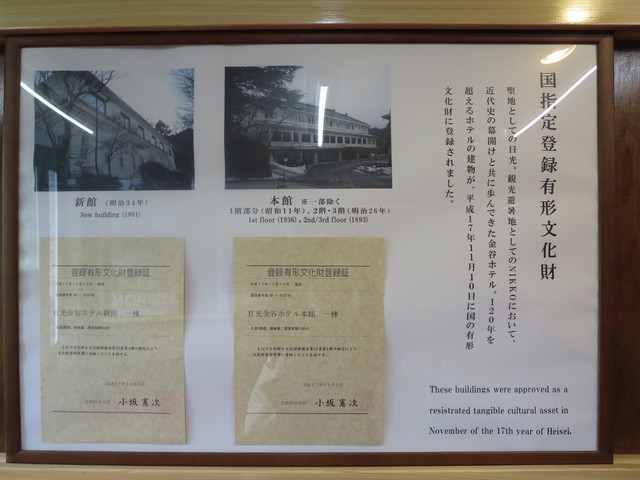 国指定登録有形文化財
聖地としての日光。観光避暑地としてのNIKKOにおいて、
近代史の幕開けと共に歩んできた金谷ホテル。120年を
超えるホテルの建物が、平成17年11月10日に国の有形
文化財に登録されました。
新館 （明治34年）
New building (1901)
本館 ※一部除く
1階部分（昭和11年）、2階・3階（明治26年）
1st floor (1936), 2nd/3rd floor (1893)
登録有形文化財登録証
日光金谷ホテル新館 一棟
小坂憲次
登録有形文化財登録証
日光金谷ホテル本館 一棟
小坂憲次
These buildings were approved as a
resistrated tangible cultural asset in
November of the 17th year of Heisei.